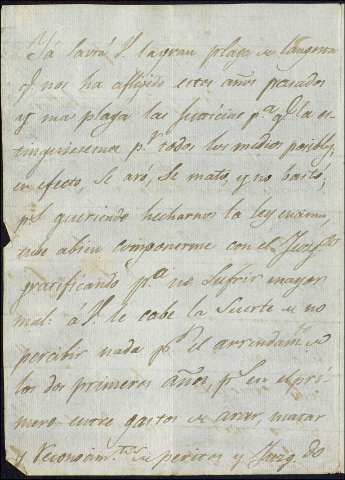 Ya sabrá V. la gran plaga de langosta
q.e nos ha aflijido estos años pasados
las Justicias p.a q.e la es
tinguiesemos p.r todos los medios posibles,
en efecto, se aró, se mato, y no bastó,
p.s queriendo hecharnos la ley encima,
tube abien componerme con el Juzg.do
gratificando p.a no sufrir mayor
mal: á V. le cabe la suerte de no
percibir nada p.r el arrendam.to de
los dos primeros años, p.s en el pri
mero entre gastos de arar, matar
y reconocim.tos de peritos y Juzg.do